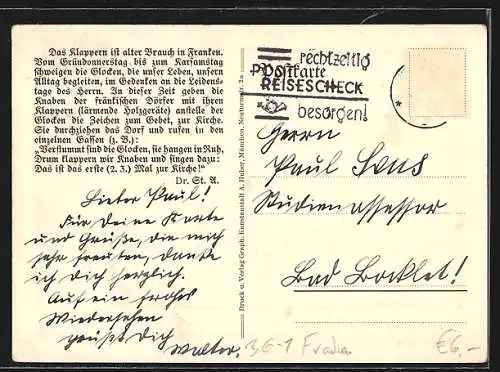 Das Klappern ist alter Brauch in Franken.
Vom Gründonnerstag bis zum Karsamstag
schweigen die Glocken, die unser Leben, unsern
Alltag begleiten, im Gedenken an die Leidens-
tage des Herrn. In dieser Zeit geben die
Knaben der fränkischen Dörfer mit ihren
Klappern (lärmende Holzgeräte) anstelle der
Glocken die Zeichen zum Gebet, zur Kirche.
Sie durchziehen das Dorf und rufen in den
einzelnen Gassen (z. B.):
„Verstummt sind die Glocken, sie hangen in Ruh,
Drum klappern wir Knaben und singen dazu:
Das ist das erste (2. 3.) Mal zur Kirche!“
Dr. St. A.
Lieber Paul!
Für Deine Karte
und Grüße, die mich
sehr freuten, danke
ich Dich herzlich.
Auf ein frohes
Wiedersehen
grüßt Dich
Walter.
Druck u. Verlag Graph. Kunstanstalt A. Huber, München, Neuturmstr. 2a
Postkarte
rechtzeitig
REISESCHECK
besorgen!
Herrn
Paul
Studienassessor
Bad Bocklet!
36-1
€6,-